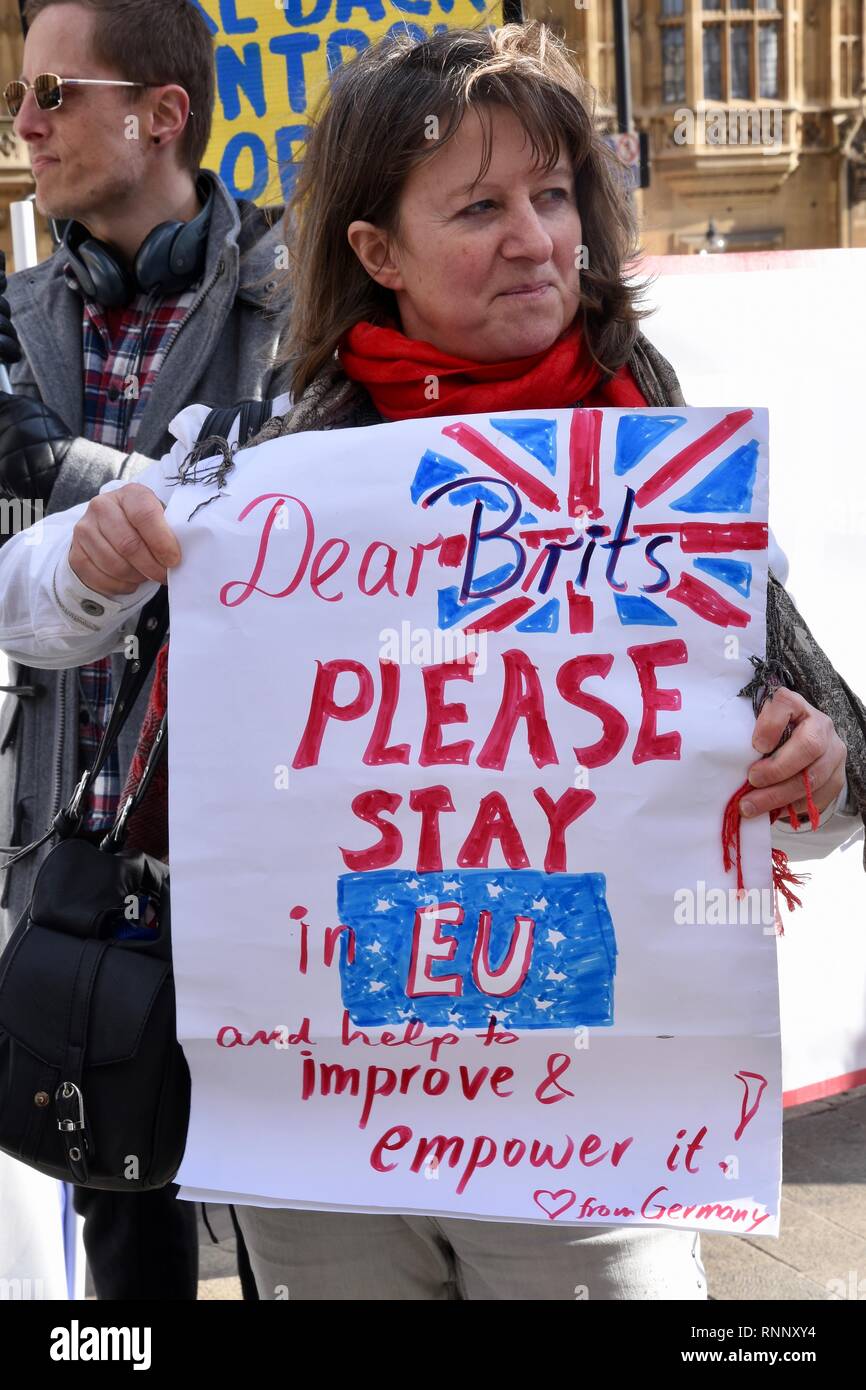 NTROL
OF
Dear Brits
PLEASE
STAY
in EU
and help to
improve &
empower it!
♡ from Germany
a
alamy
Image ID: RNNXY4
www.alamy.com